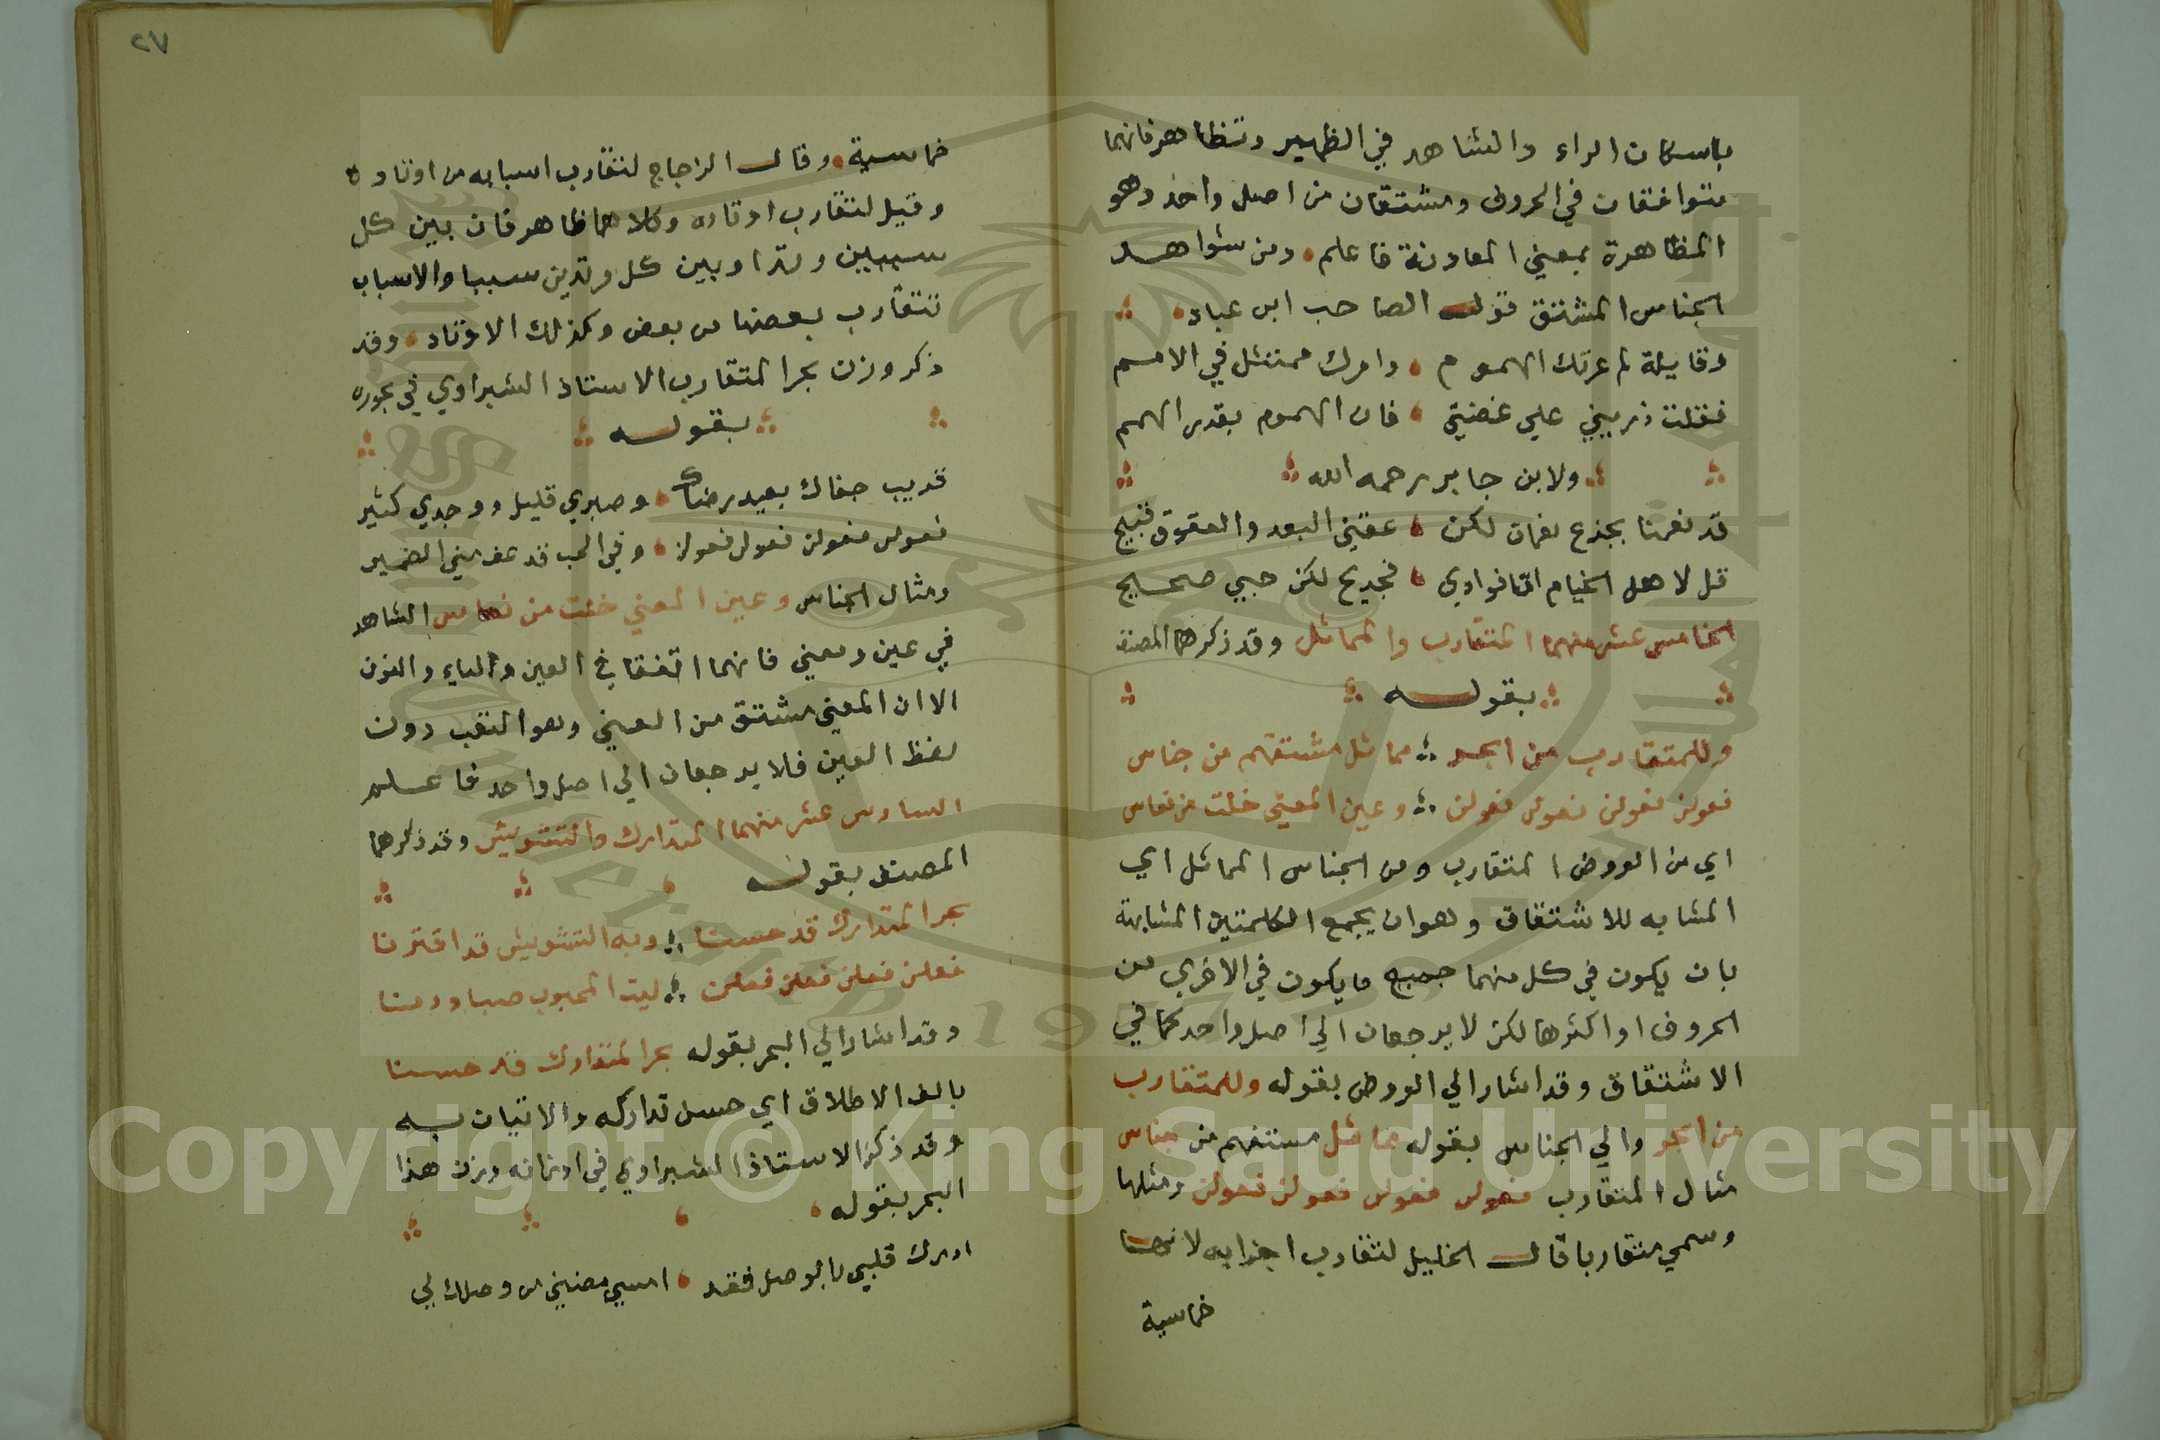 باسكان الراء والشاهد في الظهير وتظاهر فانهما
متوافقان في الحروف ومشتقان من اصل واحد وهو
المظاهرة بمعني المعاونة فاعلم ومن شواهد
الجناس المشتق قوله الصاحب ابن عباد
وقايلة لم عرتك الهموم وامرك ممتثل في الامم
فقلت ذريني علي غصتي فان الهموم بقدر الهمم
ولابن جابر رحمه الله
قد نعمنا بجزع نعمان لكن عقني البعد والعقوق قبيح
قل لاهل الخيام اما فوادي فجريح لكن حبي صحيح
الخامس عشر منهما المتقارب والمماثل وقد ذكرهما المصنف
بقوله
وللمتقارب من ابحر مماثل مشتقهم من جناس
فعولن فعولن فعولن فعولن وعين المعني خلت من نعاس
اي من العروض المتقارب ومن الجناس المماثل اي
المشابه للاشتقاق وهو ان يجمع الكلمتين المشابهة
بان يكون في كل منهما جميع ما يكون في الاخري من
الحروف او اكثرها لكن لا يرجعان الي اصل واحد كما في
الاشتقاق وقد اشار الي العروض بقوله وللمتقارب
من ابحر والي الجناس بقوله مماثل مشتقهم من جناس
مثال المتقارب فعولن فعولن فعولن فعولن ومثلها
وسمي متقاربا قال الخليل لتقارب اجزايه لانها
خماسية
٢٧
خماسية وقال الزجاج لتقارب اسبابه من اوتاده
وقيل لتقارب اوتاده وكلاهما ظاهر فان بين كل
سببين وتدا وبين كل وتدين سببا والاسباب
تتقارب بعضها من بعض وكذلك الاوتاد وقد
ذكر وزن بحر المتقارب الاستاذ الشبراوي في بحوره
بقوله
قريب جفاك بعيد رضاك وصبري قليل ووجدي كثير
فعولن فعولن فعولن فعولن وفي الحب قد عف مني الضمير
ومثال الجناس وعين المعني خلت من نعاس الشاهد
في عين ومعني فانهما اتفقا في العين والياء والنون
الا ان المعني مشتق من العني وهو التعب دون
لفظ العين فلا يرجعان الي اصل واحد فاعلم
السادس عشر منهما المتدارك والتشويش وقد ذكرهما
المصنف بقوله
بحر المتدارك قد حسنا وبه التشويش قد اقترنا
فعلن فعلن فعلن فعلن ليت المحبوب صبا ودنا
وقد اشار الي البحر بقوله بحر المتدارك قد حسنا
بالف الاطلاق اي حسن تداركه والاتيان به
وقد ذكر الاستاذ الشبراوي في اوزانه وزن هذا
البحر بقوله
ادرك قلبي بالوصل فقد امسي مضني من وصلك لي
Copyright © King Saud University